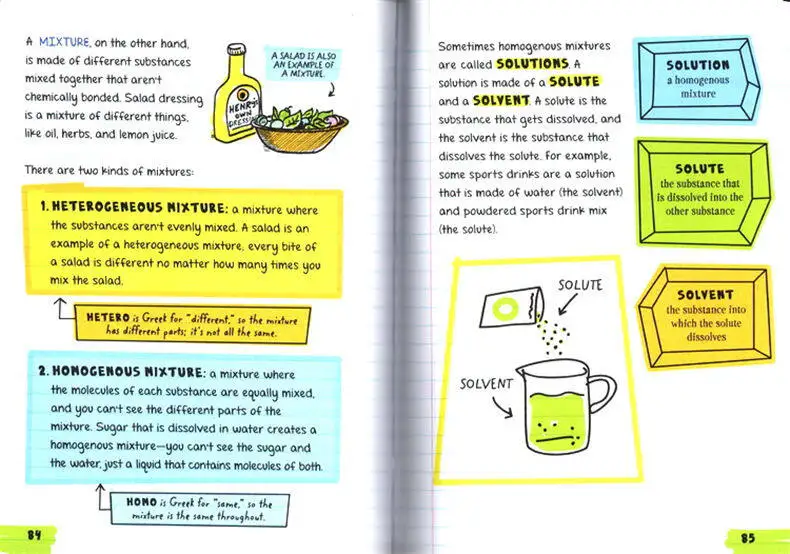 A MIXTURE, on the other hand,
is made of different substances
mixed together that aren't
chemically bonded. Salad dressing
is a mixture of different things,
like oil, herbs, and lemon juice.
A SALAD IS ALSO
AN EXAMPLE OF
A MIXTURE.
HENRY'S
OWN
DRESSING
There are two kinds of mixtures:
1. HETEROGENEOUS MIXTURE: a mixture where
the substances aren't evenly mixed. A salad is an
example of a heterogeneous mixture, every bite of
a salad is different no matter how many times you
mix the salad.
HETERO is Greek for "different," so the mixture
has different parts; it's not all the same.
2. HOMOGENOUS MIXTURE: a mixture where
the molecules of each substance are equally mixed,
and you can't see the different parts of the
mixture. Sugar that is dissolved in water creates a
homogenous mixture—you can't see the sugar and
the water, just a liquid that contains molecules of both.
HOMO is Greek for "same," so the
mixture is the same throughout.
84
Sometimes homogenous mixtures
are called SOLUTIONS. A
solution is made of a SOLUTE
and a SOLVENT. A solute is the
substance that gets dissolved, and
the solvent is the substance that
dissolves the solute. For example,
some sports drinks are a solution
that is made of water (the solvent)
and powdered sports drink mix
(the solute).
SOLUTION
a homogenous
mixture
SOLUTE
the substance that
is dissolved into the
other substance
SOLVENT
the substance into
which the solute
dissolves
SOLUTE
SOLVENT
85